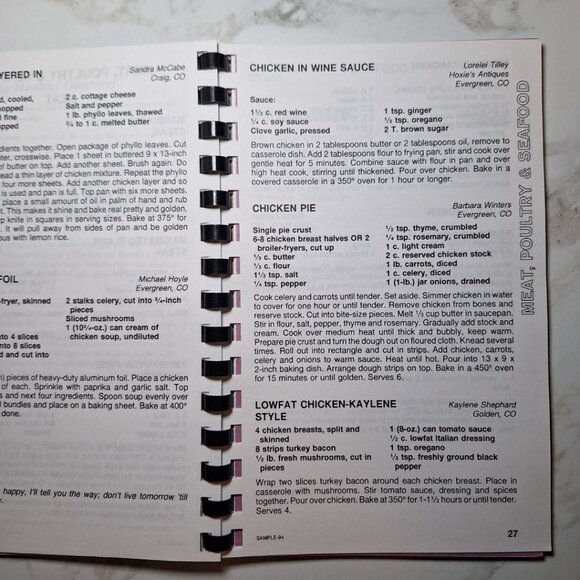 YERED IN
Sandra McCabe
Craig, CO
d, cooled,
opped
d fine
opped
2 c. cottage cheese
Salt and pepper
1 lb. phyllo leaves, thawed
¾ to 1 c. melted butter
dients together. Open package of phyllo leaves. Cut
nter, crosswise. Place 1 sheet in buttered 9 x 13-inch
d butter on top. Add another sheet. Brush again. Do
read a thin layer of chicken mixture. Repeat the phyllo
four more sheets. Add another chicken layer and so
is used and pan is full. Top pan with six more sheets.
place a small amount of oil in palm of hand and rub
t. This makes it shine and bake real pretty and golden.
p knife in squares in serving sizes. Bake at 375° for
. It will pull away from sides of pan and be golden
ous with lemon rice.
FOIL
Michael Hoyle
Evergreen, CO
-fryer, skinned
nto 4 slices
nto 8 slices
d and cut into
2 stalks celery, cut into ¾-inch
pieces
Sliced mushrooms
1 (10¾-oz.) can cream of
chicken soup, undiluted
h) pieces of heavy-duty aluminum foil. Place a chicken
of each. Sprinkle with paprika and garlic salt. Top
s and next four ingredients. Spoon soup evenly over
l bundles and place on a baking sheet. Bake at 400°
done.
happy, I'll tell you the way; don't live tomorrow 'till
CHICKEN IN WINE SAUCE
Lorelei Tilley
Hoxie's Antiques
Evergreen, CO
Sauce:
1½ c. red wine
¼ c. soy sauce
Clove garlic, pressed
1 tsp. ginger
½ tsp. oregano
2 T. brown sugar
Brown chicken in 2 tablespoons butter or 2 tablespoons oil, remove to
casserole dish. Add 2 tablespoons flour to frying pan, stir and cook over
gentle heat for 5 minutes. Combine sauce with flour in pan and over
high heat cook, stirring until thickened. Pour over chicken. Bake in a
covered casserole in a 350° oven for 1 hour or longer.
CHICKEN PIE
Barbara Winters
Evergreen, CO
Single pie crust
6-8 chicken breast halves OR 2
broiler-fryers, cut up
⅓ c. butter
⅓ c. flour
1½ tsp. salt
¼ tsp. pepper
½ tsp. thyme, crumbled
¼ tsp. rosemary, crumbled
1 c. light cream
2 c. reserved chicken stock
1 lb. carrots, diced
1 c. celery, diced
1 (1-lb.) jar onions, drained
Cook celery and carrots until tender. Set aside. Simmer chicken in water
to cover for one hour or until tender. Remove chicken from bones and
reserve stock. Cut into bite-size pieces. Melt ⅓ cup butter in saucepan.
Stir in flour, salt, pepper, thyme and rosemary. Gradually add stock and
cream. Cook over medium heat until thick and bubbly, keep warm.
Prepare pie crust and turn the dough out on floured cloth. Knead several
times. Roll out into rectangle and cut in strips. Add chicken, carrots,
celery and onions to warm sauce. Heat until hot. Pour into 13 x 9 x
2-inch baking dish. Arrange dough strips on top. Bake in a 450° oven
for 15 minutes or until golden. Serves 6.
LOWFAT CHICKEN-KAYLENE
STYLE
Kaylene Shephard
Golden, CO
4 chicken breasts, split and
skinned
8 strips turkey bacon
½ lb. fresh mushrooms, cut in
pieces
1 (8-oz.) can tomato sauce
½ c. lowfat Italian dressing
1 tsp. oregano
½ tsp. freshly ground black
pepper
Wrap two slices turkey bacon around each chicken breast. Place in
casserole with mushrooms. Stir tomato sauce, dressing and spices
together. Pour over chicken. Bake at 350° for 1-1½ hours or until tender.
Serves 4.
SAMPLE-94
27
MEAT, POULTRY & SEAFOOD